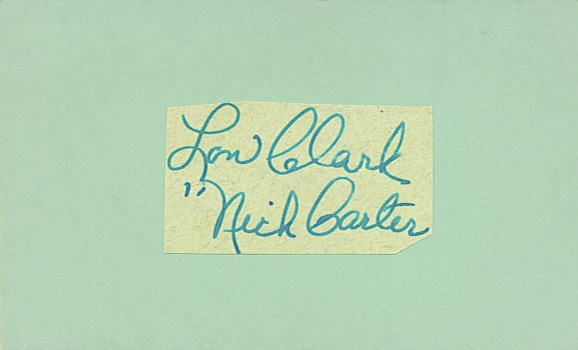 Lon Clark
"Nick Carter